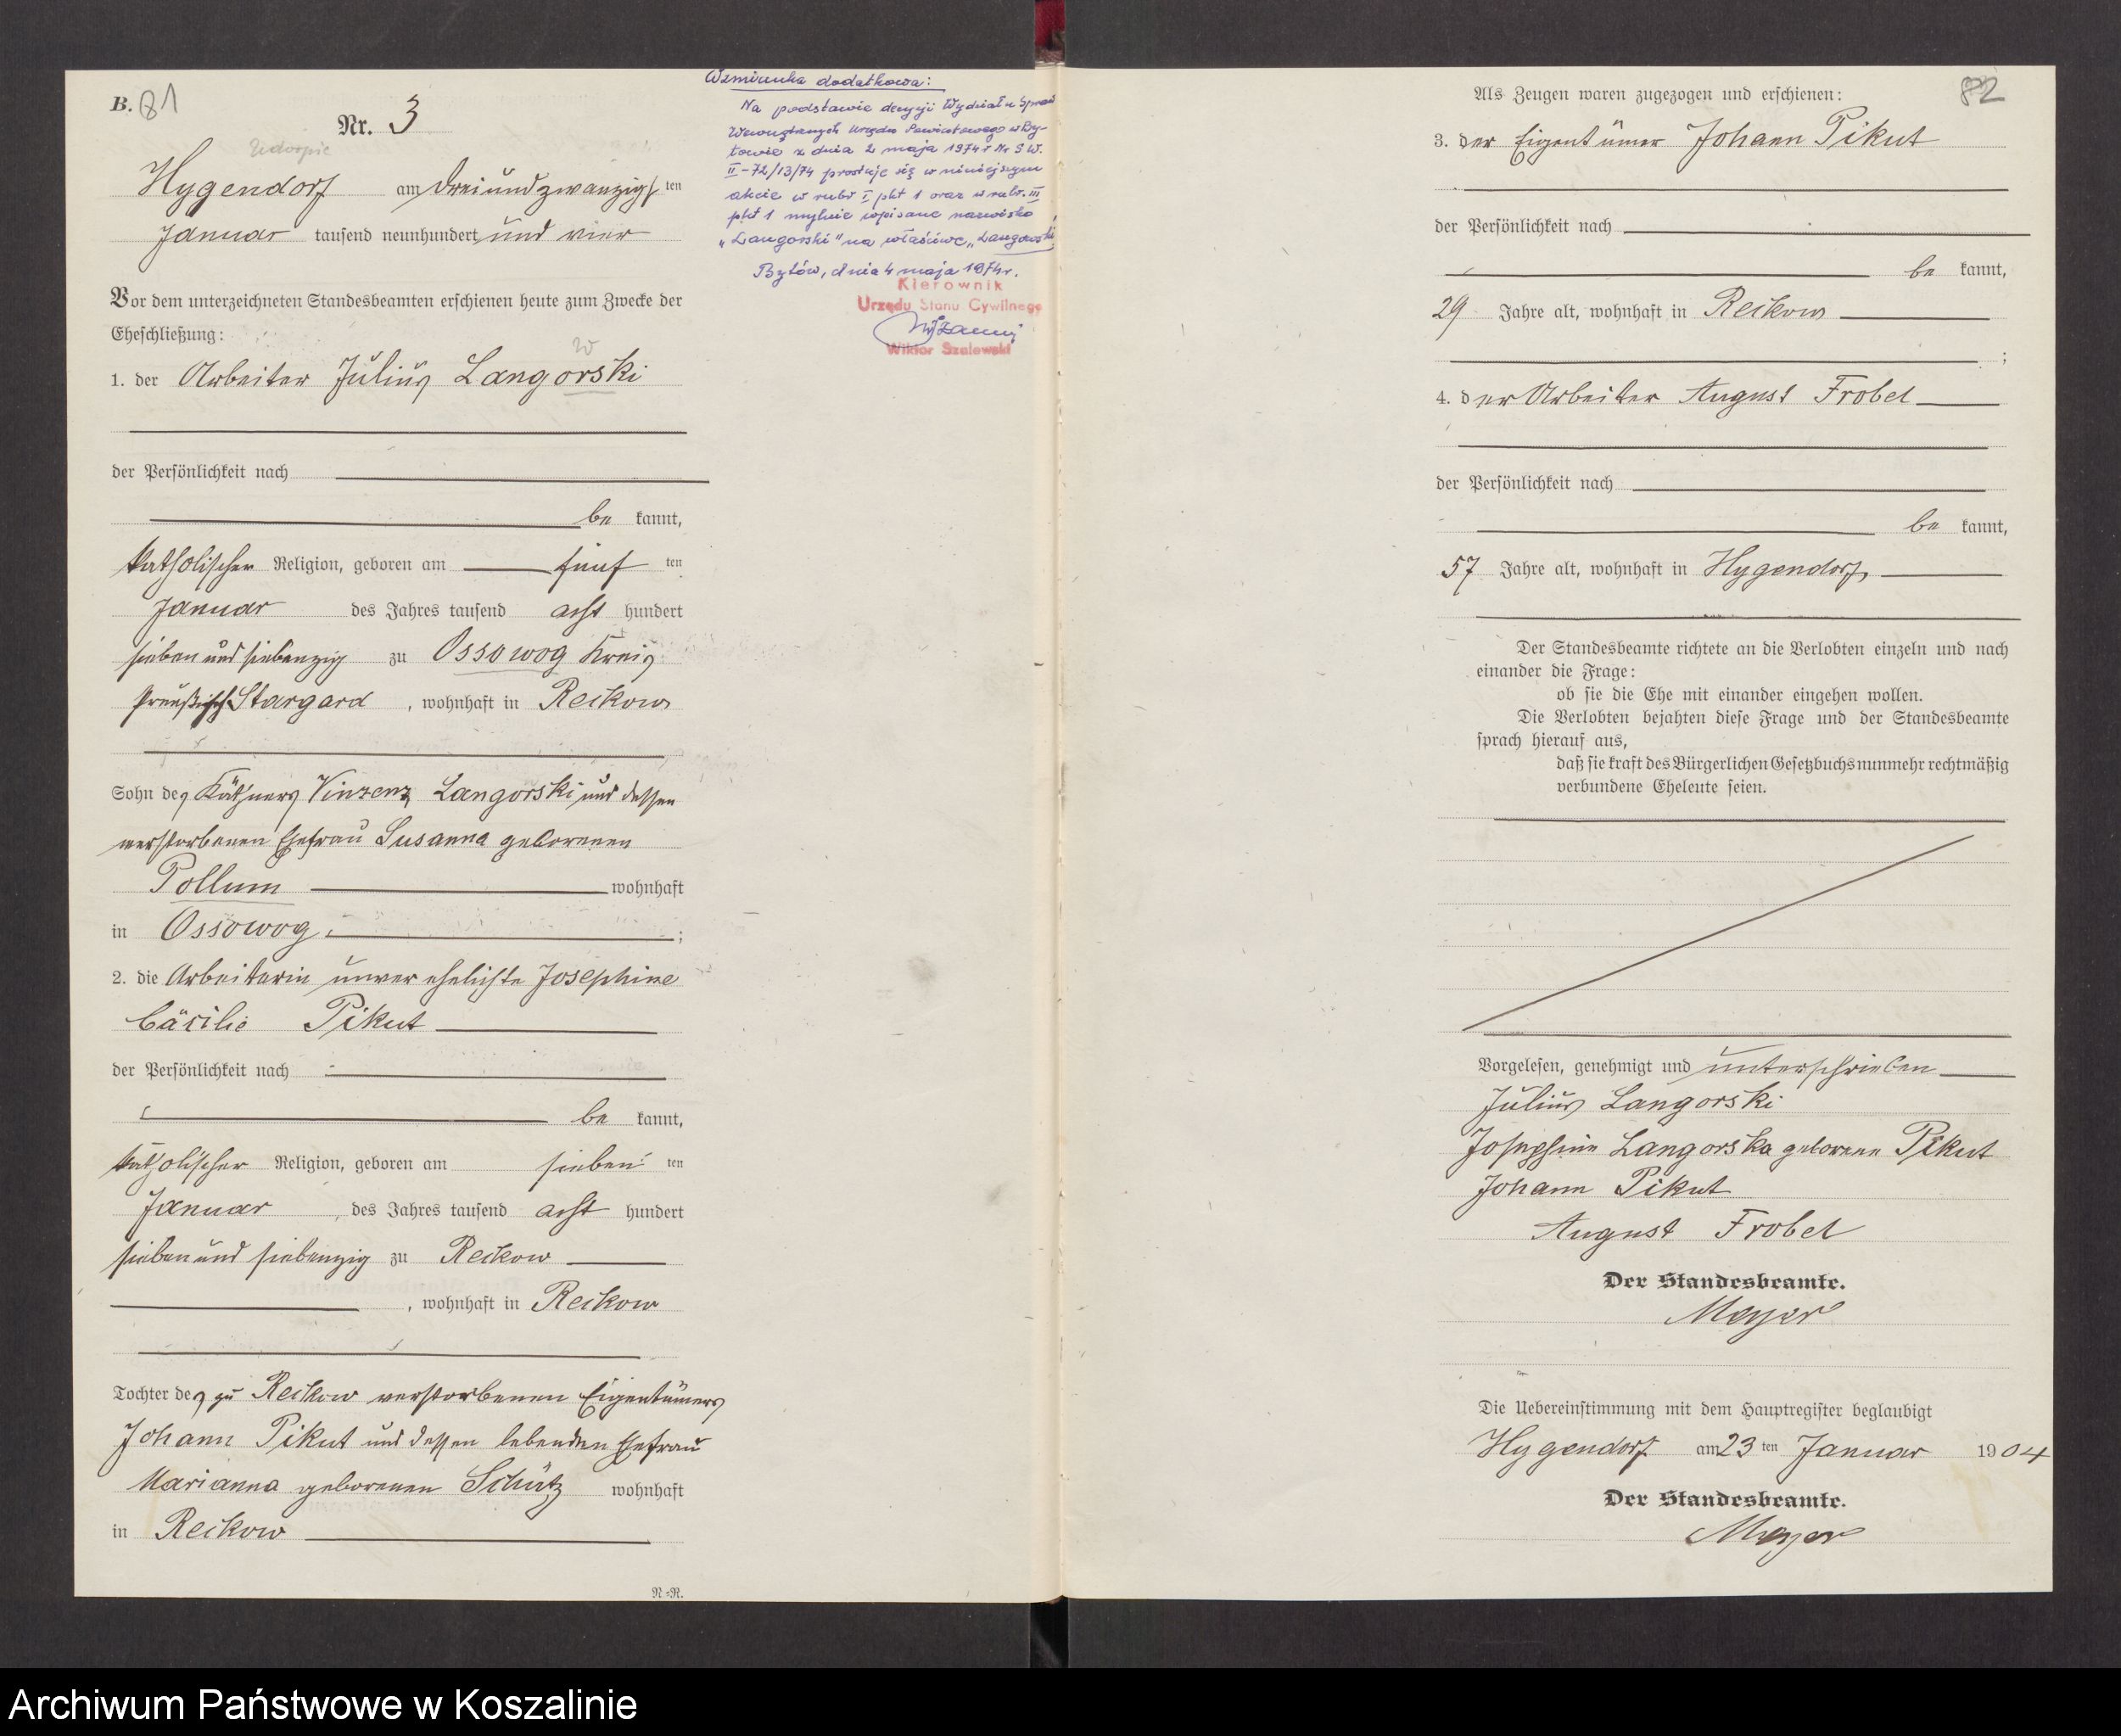 B. 81
Nr. 3
Hygendorf am dreiundzwanzigsten
Januar tausend neunhundert und vier
Vor dem unterzeichneten Standesbeamten erschienen heute zum Zwecke der
Eheschließung:
w
1. der Arbeiter Julius Langorski
der Persönlichkeit nach
be kannt,
katholischer Religion, geboren am fünf ten
Januar des Jahres tausend acht hundert
sieben und siebenzig zu Ossowog Kreis
Preußisch Stargard, wohnhaft in Reckow
Sohn des Käthners Vinzenz Langorski und dessen
verstorbenen Ehefrau Susanna geborenen
Pollum wohnhaft
in Ossowog ;
2. die Arbeiterin unverehelichte Josephine
Cäcilie Pikut
der Persönlichkeit nach
be kannt,
katholischer Religion, geboren am sieben ten
Januar des Jahres tausend acht hundert
sieben und siebenzig zu Reckow
, wohnhaft in Reckow
Tochter des zu Reckow verstorbenen Eigentümers
Johann Pikut und dessen lebenden Ehefrau
Marianna geborenen Schütz wohnhaft
in Reckow
N=R.
Wzmianka dodatkowa:
Na podstawie decyzji Wydziału Spraw
Wewnętrznych Urzędu Powiatowego w By-
towie z dnia 2 maja 1974 r Nr S W.
II-72/13/74 prostuje się w niniejszym
akcie w rubr I pkt 1 oraz w rubr. III
pkt 1 mylnie wpisane nazwisko
„Langorski" na właściwe „Langowski
Bytów, dnia 4 maja 1974r.
Kierownik
Urzędu Stanu Cywilnego
Wiktor Szalewski
82
Als Zeugen waren zugezogen und erschienen:
3. der Eigentümer Johann Pikut
der Persönlichkeit nach
be kannt,
29 Jahre alt, wohnhaft in Reckow
;
4. der Arbeiter August Frobel
der Persönlichkeit nach
be kannt,
57 Jahre alt, wohnhaft in Hygendorf,
Der Standesbeamte richtete an die Verlobten einzeln und nach
einander die Frage:
ob sie die Ehe mit einander eingehen wollen.
Die Verlobten bejahten diese Frage und der Standesbeamte
sprach hierauf aus,
daß sie kraft des Bürgerlichen Gesetzbuchs nunmehr rechtmäßig
verbundene Eheleute seien.
Vorgelesen, genehmigt und unterschrieben
Julius Langorski
Josephine Langorska geborene Pikut
Johann Pikut
August Frobel
Der Standesbeamte.
Meyer
Die Uebereinstimmung mit dem Hauptregister beglaubigt
Hygendorf am 23 ten Januar 1904
Der Standesbeamte.
Meyer
Archiwum Państwowe w Koszalinie